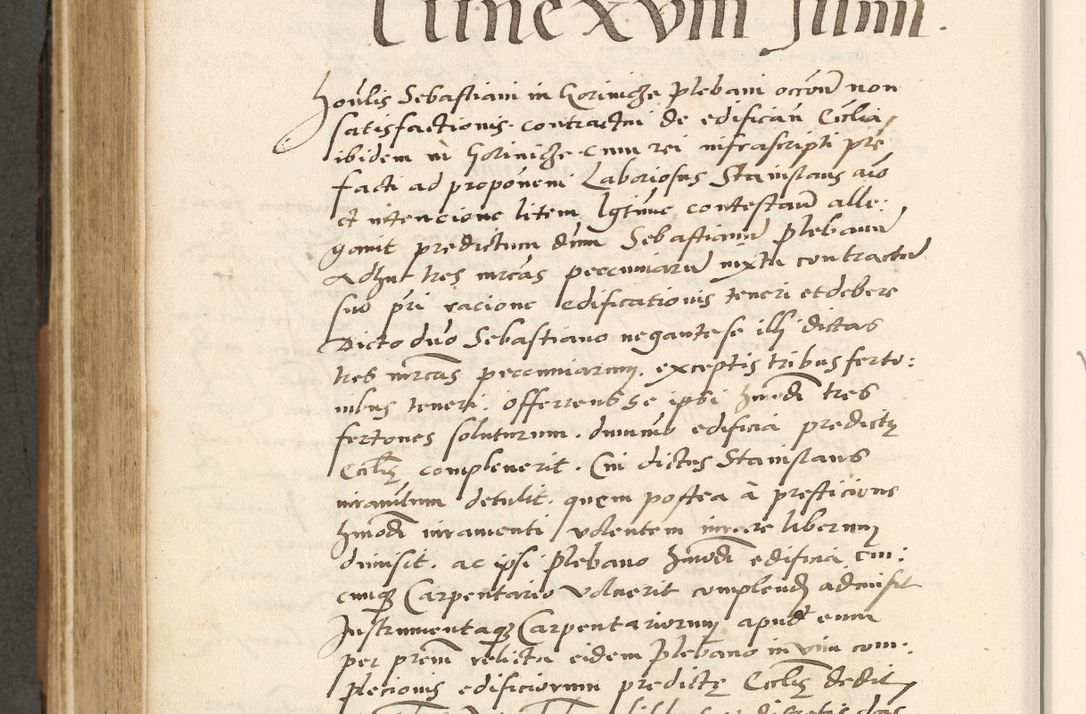 Lune xviii Junii.
Honlis Sebastiani in Goriniche plebani occoñ non
satisfactionis contractui de edificañ Ecclia
ibidem in Goriniche cum rei infrascripti pre
facti ad proponeñ Laboriosus Stanislaus aio
et intencione litem lgtime contestañ alle:
gavit predictum dnm Sebastianum plebanum
Adhuc tres mrcas peccuniarum iuxta contractum
suo pri racione edificationis teneri et debere
Dicto dno Sebastiano negante se illi dictas
tres mrcas pecconiarum, exceptis tribus ferto:
nibus teneri. Offerrens se ipsi hmodi tres
fertones soluturum. dummo edificia predictę
Ecclię compleverit. Cui dictus Stanislaus
iuramentum detulit. quem postea à presticione
hmodi iuramenti volentem iurare liberum
dimisit. ac ipsi plebano hmodi edificia cui:
cunq Carpentario voluerit complend admisit
Instrumentaq Carpentariorum apud eum
per prem relicta eidem plebano in vim com:
plecionis edificiorum predictę Ecclię dedit